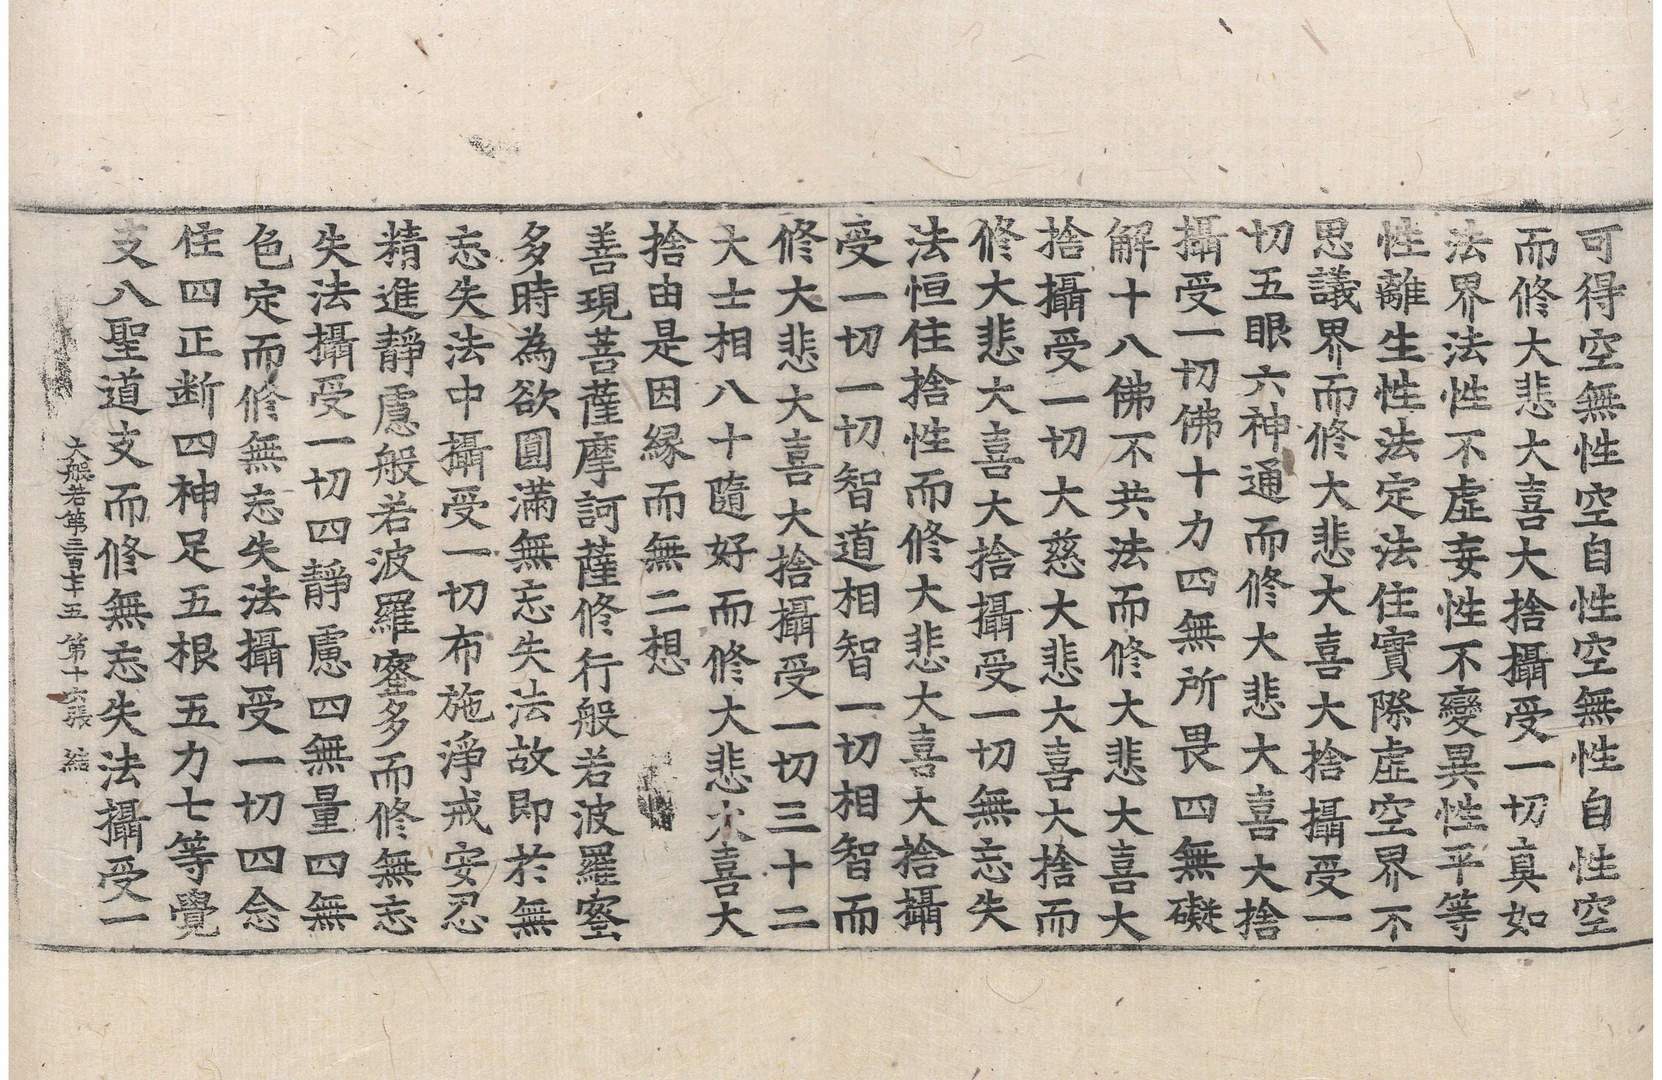 可得空無性空自性空無性自性空
而修大悲大喜大捨攝受一切真如
法界法性不虛妄性不變異性平等
性離生性法定法住實際虛空界不
思議界而修大悲大喜大捨攝受一
切五眼六神通而修大悲大喜大捨
攝受一切佛十力四無所畏四無礙
解十八佛不共法而修大悲大喜大
捨攝受一切大慈大悲大喜大捨而
修大悲大喜大捨攝受一切無忘失
法恒住捨性而修大悲大喜大捨攝
受一切一切智道相智一切相智而
修大悲大喜大捨攝受一切三十二
大士相八十隨好而修大悲大喜大
捨由是因縁而無二想
善現菩薩摩訶薩修行般若波羅蜜
多時為欲圓滿無忘失法故即於無
忘失法中攝受一切布施淨戒安忍
精進靜慮般若波羅蜜多而修無忘
失法攝受一切四靜慮四無量四無
色定而修無忘失法攝受一切四念
住四正断四神足五根五力七等覺
支八聖道支而修無忘失法攝受一
大般若第三百七十五 第十六張 結